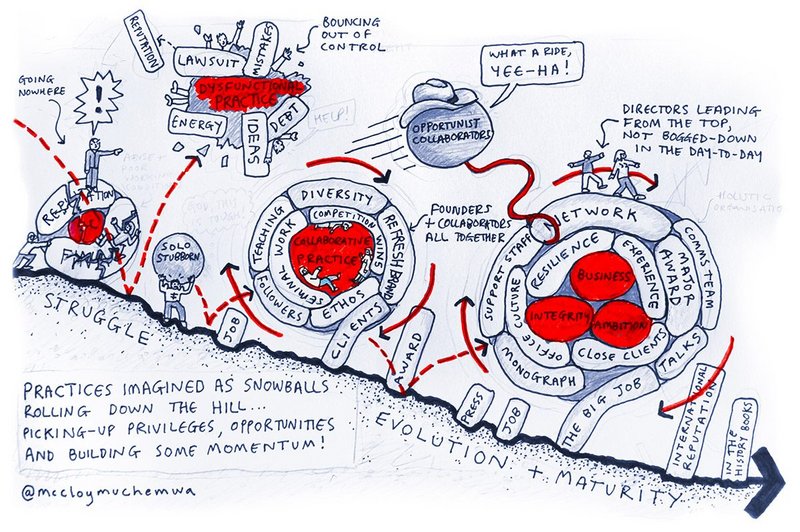 REPUTATION
LAWSUIT
MISTAKES
DYSFUNCTIONAL
PRACTICE
ENERGY
IDEAS
DEBT
BOUNCING
OUT OF
CONTROL
HELP!
GOING
NOWHERE
!
REPUTATION
SOLO
STUBBORN
STRUGGLE
JOB
TEACHING
DIVERSITY
REFRESH BRAND
COMPETITION
WINS
WORK
COLLABORATIVE
PRACTICE
INTERNAL
ETHOS
FOLLOWERS
CLIENTS
AWARD
FOUNDERS
+ COLLABORATORS
ALL TOGETHER
WHAT A RIDE,
YEE-HA!
OPPORTUNIST
COLLABORATORS
DIRECTORS LEADING
FROM THE TOP,
NOT BOGGED-DOWN
IN THE DAY-TO-DAY
HOLISTIC
NETWORK
SUPPORT STAFF
RESILIENCE
EXPERIENCE
MAJOR
AWARD
COMMS TEAM
BUSINESS
INTEGRITY
AMBITION
OFFICE CULTURE
CLOSE CLIENTS
TALKS
MONOGRAPH
THE BIG JOB
PRESS
JOB
INTERNATIONAL
REPUTATION
IN THE
HISTORY BOOKS
EVOLUTION + MATURITY
PRACTICES IMAGINED AS SNOWBALLS
ROLLING DOWN THE HILL...
PICKING-UP PRIVILEGES, OPPORTUNITIES
AND BUILDING SOME MOMENTUM!
@mccloymuchemwa